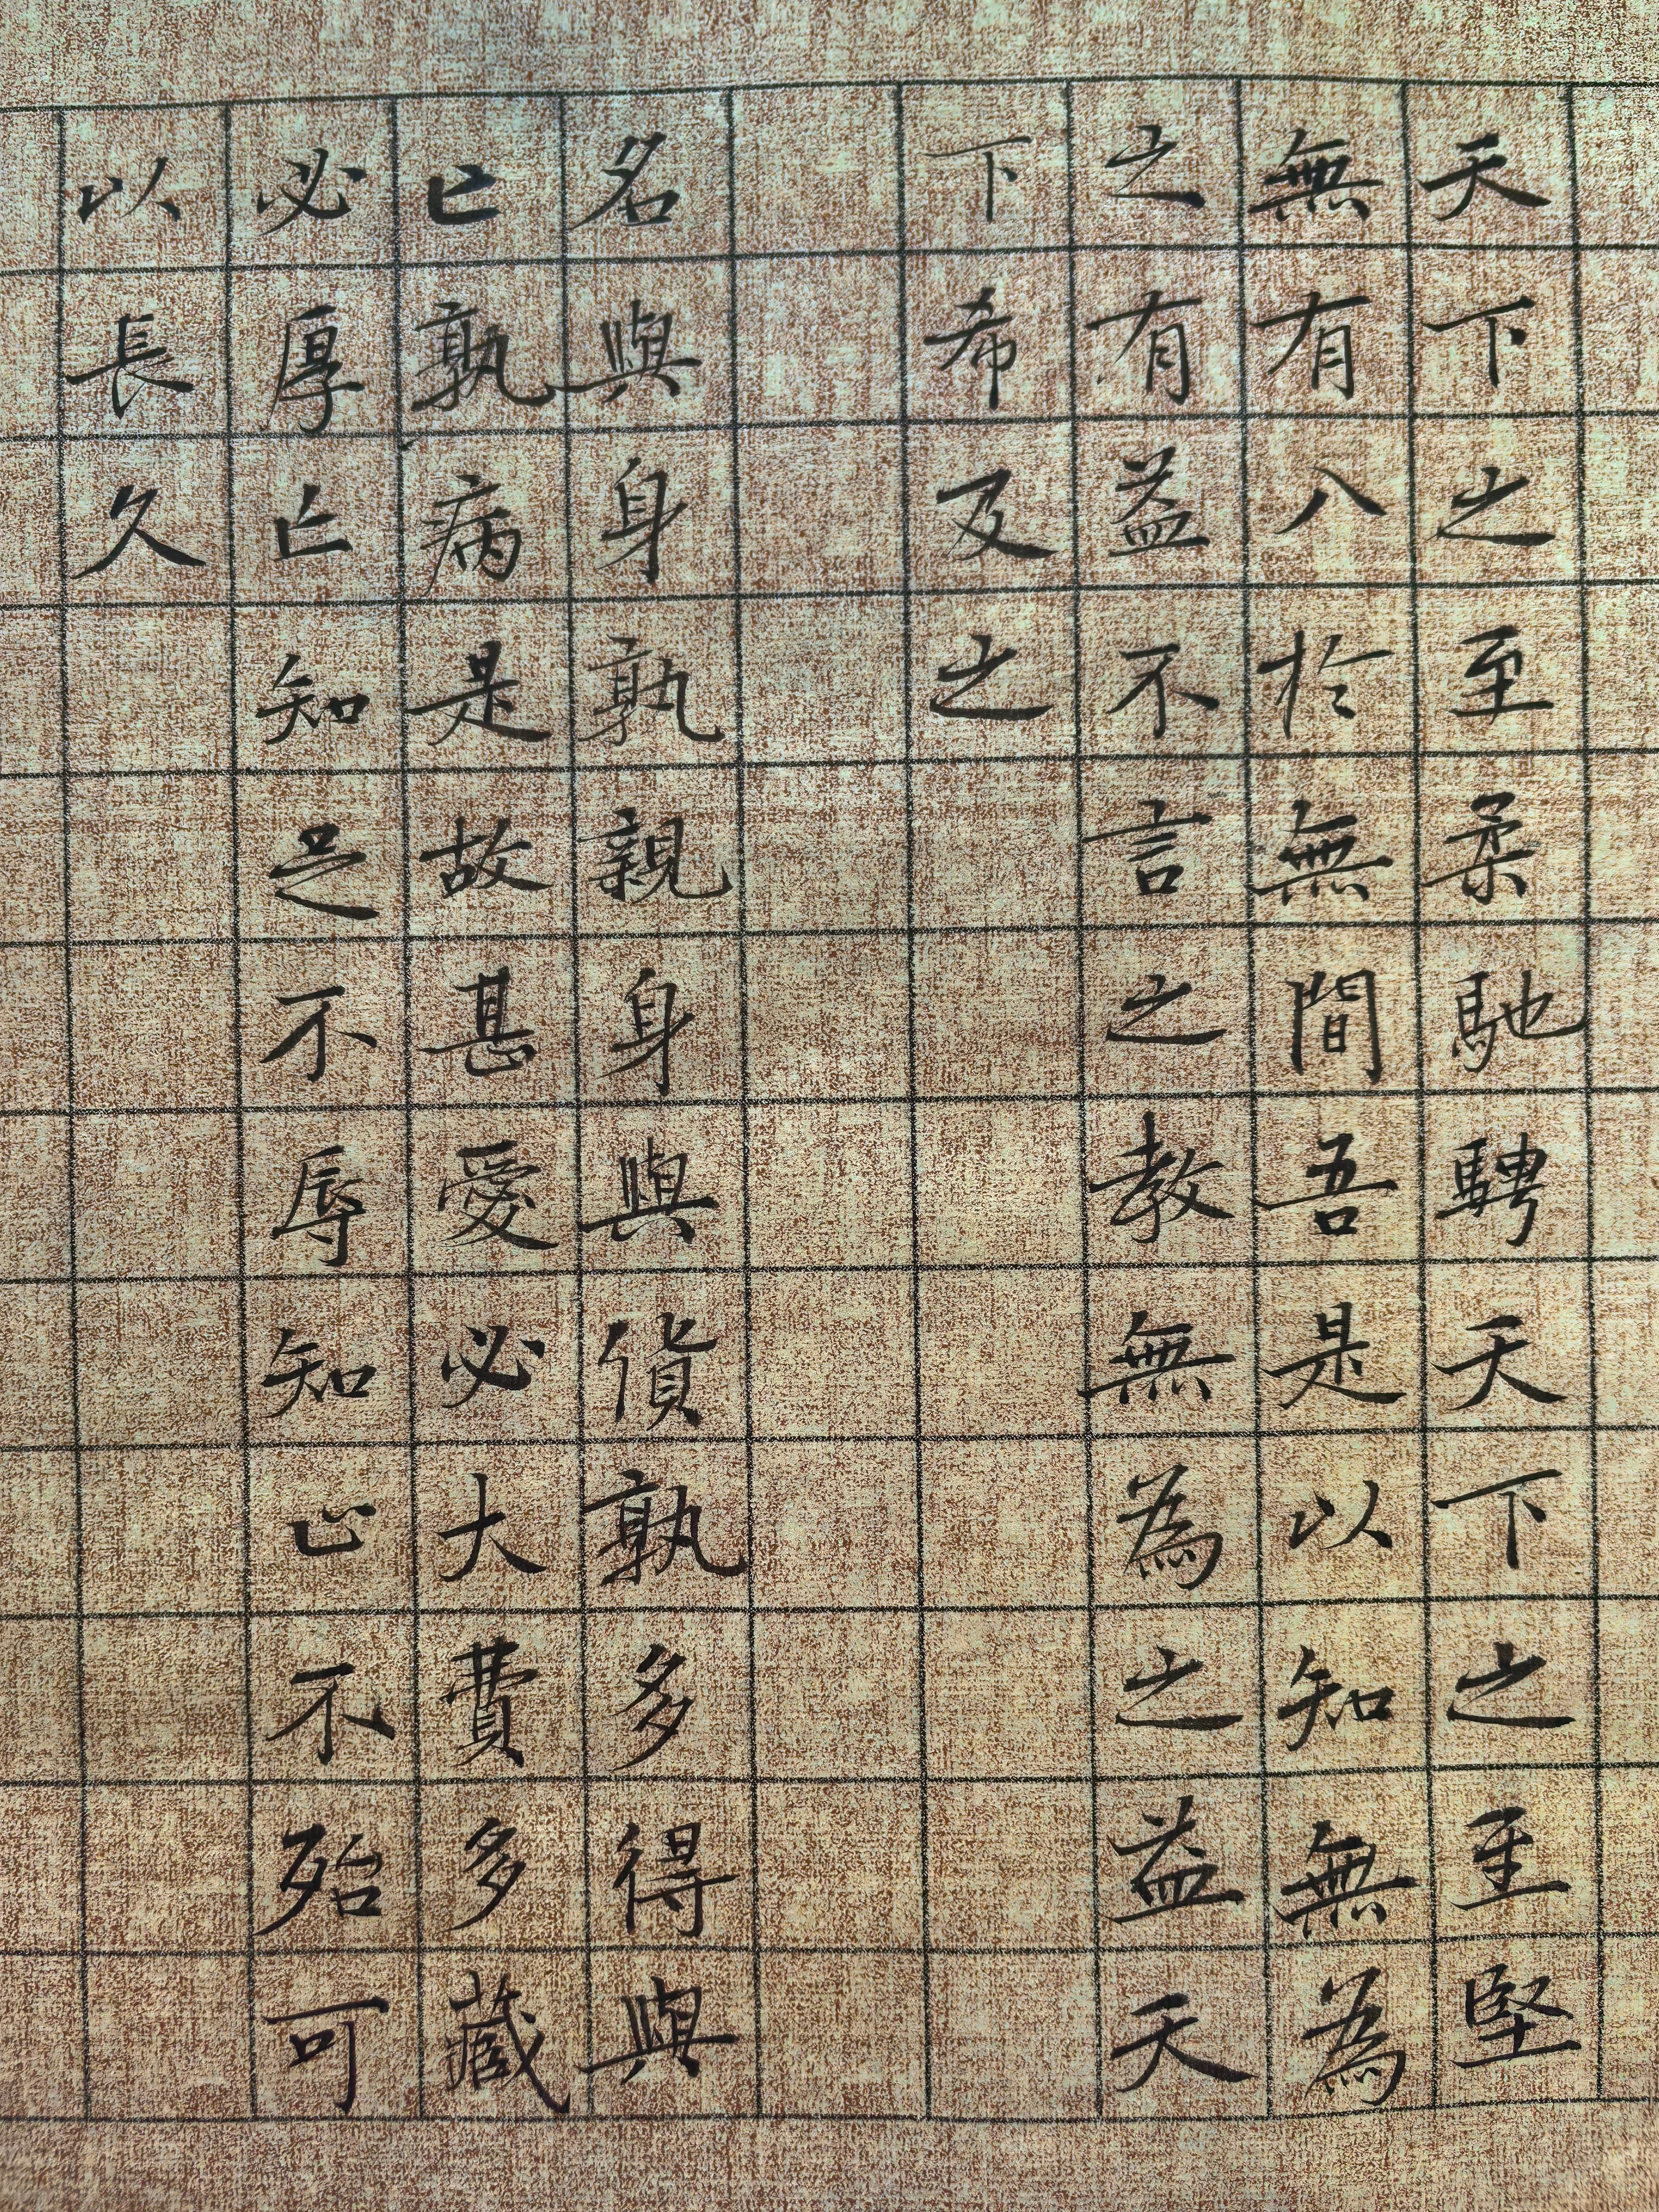 天下之至柔馳騁天下之至堅
無有入於無間吾是以知無為
之有益不言之教無為之益天
下希及之
名與身孰親身與貨孰多得與
亡孰病是故甚愛必大費多藏
必厚亡知足不辱知止不殆可
以長久